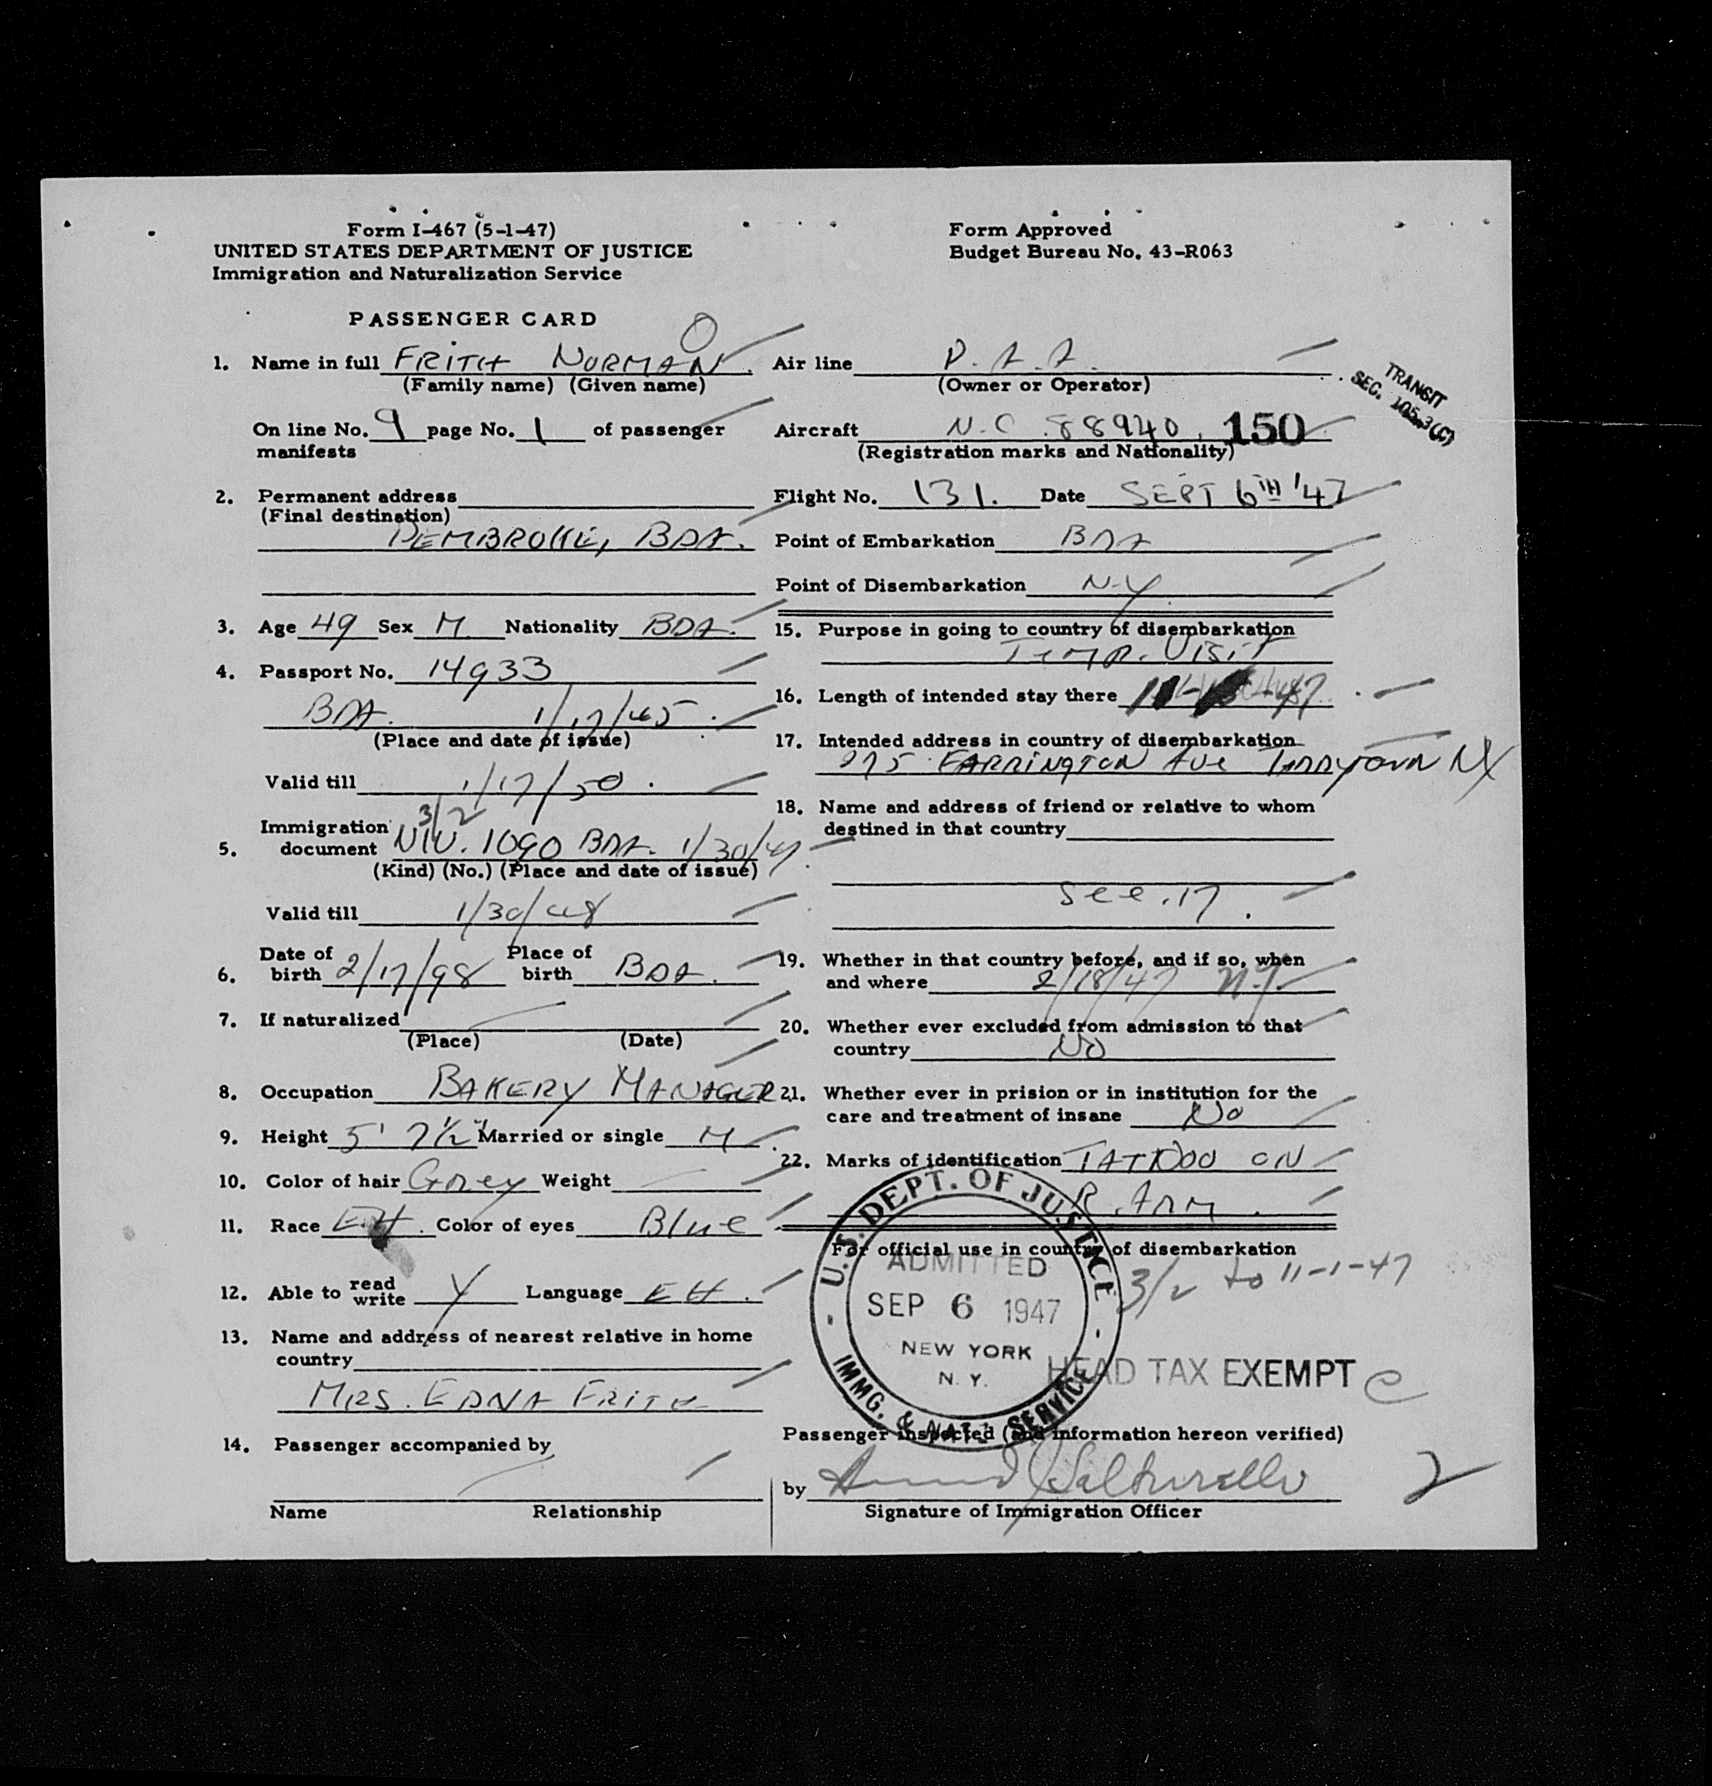 Form I-467 (5-1-47)
UNITED STATES DEPARTMENT OF JUSTICE
Immigration and Naturalization Service
PASSENGER CARD
1. Name in full FRITH NORMAN
(Family name) (Given name)
On line No. 9 page No. 1 of passenger
manifests
2. Permanent address
(Final destination)
PEMBROKE, BDA.
3. Age 49 Sex M Nationality BDA.
4. Passport No. 14933
BDA. 1/17/45
(Place and date of issue)
Valid till 1/17/50.
3/2
Immigration
5. document NIV. 1090 BDA. 1/30/47
(Kind) (No.) (Place and date of issue)
Valid till 1/30/48
Date of Place of
6. birth 2/17/98 birth BDA.
7. If naturalized
(Place) (Date)
8. Occupation BAKERY MANAGER
9. Height 5' 7½" Married or single M
10. Color of hair Grey Weight
11. Race EH. Color of eyes Blue
12. Able to read write Y Language EH.
13. Name and address of nearest relative in home
country
MRS. EDNA FRITH
14. Passenger accompanied by
Name Relationship
Form Approved
Budget Bureau No. 43-R063
Air line P.A.A.
(Owner or Operator)
TRANSIT
SEC. 105.3(C)
Aircraft N.C. 88940. 150
(Registration marks and Nationality)
Flight No. 131. Date SEPT 6TH '47
Point of Embarkation BDA
Point of Disembarkation N.Y
15. Purpose in going to country of disembarkation
TEMP. VISIT
16. Length of intended stay there
17. Intended address in country of disembarkation
275 FARRINGTON AVE TARRYTOWN NY
18. Name and address of friend or relative to whom
destined in that country
See.17.
19. Whether in that country before, and if so, when
and where 2/18/47 N.Y.
20. Whether ever excluded from admission to that
country NO
21. Whether ever in prision or in institution for the
care and treatment of insane No
22. Marks of identification TATTOO ON
R. ARM.
For official use in country of disembarkation
3/2 to 11-1-47
U.S. DEPT. OF JUSTICE
ADMITTED
SEP 6 1947
NEW YORK
N. Y.
IMMG. & NAT'L SERVICE
HEAD TAX EXEMPT
Passenger inspected (and information hereon verified)
by
Signature of Immigration Officer
2